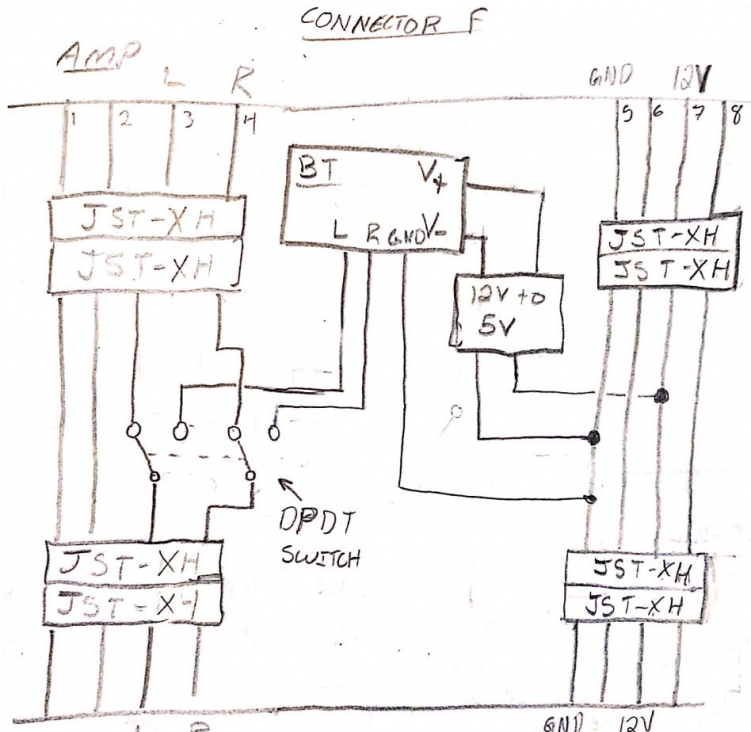 CONNECTOR F
AMP L R
GND 12V
1 2 3 4
5 6 7 8
BT V+
L R GND V-
JST-XH
JST-XH
JST-XH
JST-XH
12V to
5V
DPDT
SWITCH
JST-XH
JST-XH
JST-XH
JST-XH
GND 12V